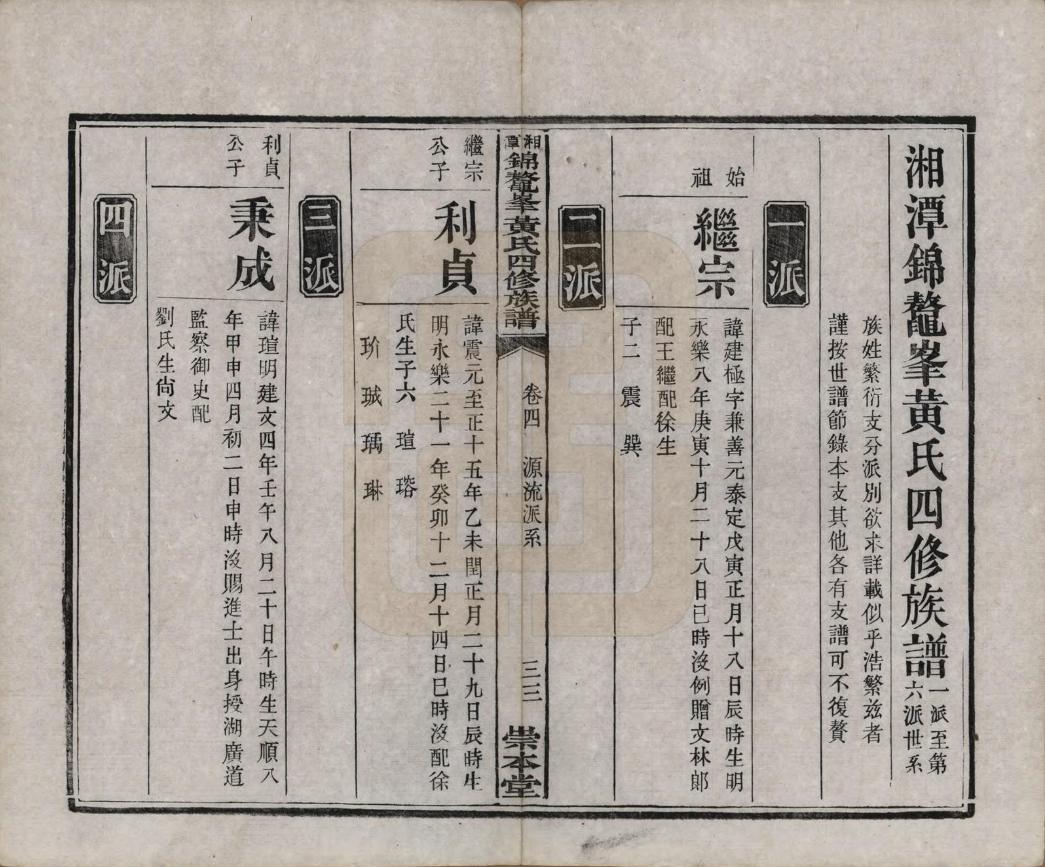 湘潭錦鼇峯黃氏四修族譜
一派至第
六派世系
族姓繁衍支分派別欲求詳載似乎浩繁茲者
謹按世譜節錄本支其他各有支譜可不復贅
一派
始
祖
繼宗
諱建極字兼善元泰定戊寅正月十八日辰時生明
永樂八年庚寅十月二十八日巳時沒例贈文林郎
配王繼配徐生
子二 震 巽
二派
湘潭錦鼇峯黃氏四修族譜
卷四 源流派系
三三
崇本堂
繼宗
公子
利貞
諱震元至正十五年乙未閏正月二十九日辰時生
明永樂二十一年癸卯十二月十四日巳時沒配徐
氏生子六 瑄 瑢
玠 珹 瑀 琳
三派
利貞
公子
秉成
諱瑄明建文四年壬午八月二十日午時生天順八
年甲申四月初二日申時沒賜進士出身授湖廣道
監察御史配
劉氏生尙文
四派